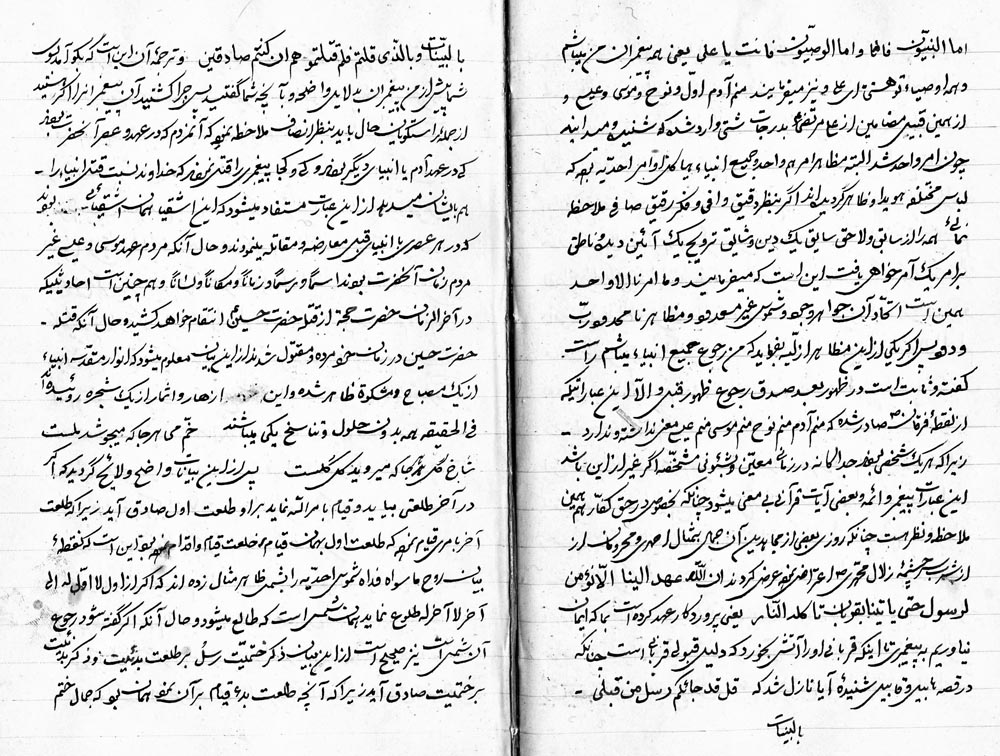 اما النبیّون فانا و اما الوصیّون فانت یا علی یعنی همه پیغمبران من میباشم
و همه اوصیاء تو هستی ای علی و نیز میفرمایند منم آدم اول و نوح و موسی و عیسی و
از همین قبیل مضامین از علی مرتضی بدرجات شتی وارد شده که شنیده و میدانید
چون امر واحد شد البته مظاهر امر هم واحد و جمیع انبیاء هیاکل اوامر احدیه بوده که
لباس مختلفه هویدا و ظاهر گردیده‌اند اگر بنظر دقیق وافی و فکر رقیق صافی ملاحظه
نمائی همه را از سابق و لاحق سایق یک دین و شائق ترویج یک آئین دیده و ناطق
بر امر یک آمر خواهی یافت این است که میفرمایند و ما امرنا الا واحد
همین است اتحاد آن جواهر وجود و شموس غیر معدود و مظاهر نامحدود ربّ
ودود پس اگر یکی از این مظاهر ازلیه بفرماید که من رجوع جمیع انبیاء میباشم راست
گفته و ثابت است در ظهور بعد صدق رجوع ظهور قبل و الا از این عباراتیکه
از نقطهٔ فرقان صادر شده که منم آدم منم نوح منم موسی منم عیسی معنی نداشته و ندارد
زیرا که هر یک شخصی بودند جداگانه در زمانی معیّن و بشئونی مشخصه اگر غیر از این باشد
این عبارات پیغمبر و ائمه و بعضی آیات قرآنی بی معنی میشود چنانکه بخصوص در حق کفّار هم همین
ملاحظه و نظر هست چنانکه روزی بعضی از مجاهدین آن جمال بیمثال احدی و محرومان از
از شرب چشمهٔ زلال محمدی ص اعراض نموده عرض کردند ان الله عهد الینا الا نؤمن
لرسول حتی یاتینا بقربان تاکله النار یعنی پروردگار عهد کرده است بما که ایمان
نیاوریم به پیغمبری تا اینکه قربانی او را آتشی بخورد که دلیل قبولی قربانی است چنانکه
در قصه هابیل و قابیل شنیدهٔ آیا نازل شد که قل قد جائکم رسل من قبلی
بالبینات
بالبینات و بالذی قلتم فلم قتلتموهم ان کنتم صادقین و ترجمهٔ آن این است که بگو آمد بسوی
شما پیش از من پیغمبران بدلایل واضحه و بآنچه شما گفتید پس چرا کشتید آن پیغمبرانرا اگر هستید
از جملهٔ راستگویان حال باید بنظر انصاف ملاحظه نمود که آنمردم که در عهد و عصر آنحضرت بودند
کی در عهد آدم یا انبیای دیگر بوده و کی و کجا پیغمبری را قتل نموده که خداوند نسبت قتل انبیاء را
هم بایشان میدهد از این عبارت مستفاد میشود که این اشقیا همان اشقیائی بودند
که در هر عصری با انبیای قبل معارضه و مقاتله مینمودند و حال آنکه مردم عهد موسی و عیسی غیر
مردم زمان آنحضرت بودند اسما و رسما و زمانا و مکانا و لسانا و هم چنین است احادیثیکه
در آخر الزمان حضرت حجة از قتلهٔ حضرت حسین ع انتقام خواهد کشید و حال آنکه قتله
حضرت حسین در زمان خود مرده و مقتول شدند از این بیان معلوم میشود که انوار مقدسه انبیاء
از یک مصباح و مشکوة ظاهر شده و این ازهار و اثمار از یک شجره روئیده‌اند
فی الحقیقه همه بدون حلول و تناسخ یکی میباشند خم می هر جا که میجوشد ملست
شاخ گل هر جا که میروید گل گلست پس از این بیانات واضح و لائح گردید که اگر
در آخر طلعتی بیاید و قیام بامر الله نماید بر او طلعت اول صادق آید زیرا که طلعت
آخر بامری قیام نموده که طلعت اول بهمان قیام خلعت قیام و اقدام نموده بود این است که نقطهٔ
بیان روح ما سواه فداه شموس احدیه را بشمس ظاهر مثال زده‌اند که اگر از اول لا اول له الی
آخر لا آخر له طلوع نماید همان شمس است که طالع میشود و حال آنکه اگر گفته شود رجوع
آن شمس است نیز صحیح است از این بیان ذکر ختمیّت رسل بر طلعت بدئیت و ذکر بدئیت
بر ختمیت صادق آید زیرا که آنچه طلعت بدء قیام بر آن نموده همان بود که جمال ختم